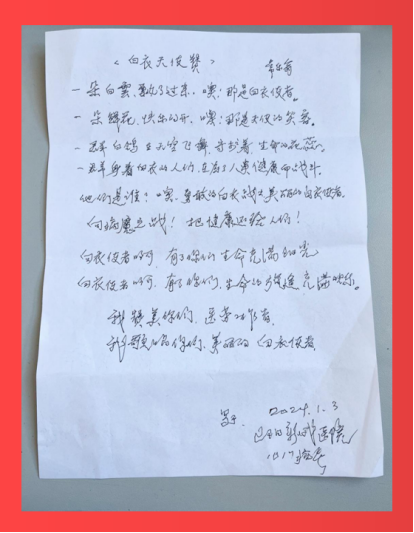 《白衣天使赞》
一朵白云,飘了过来,噢!那是白衣使者。
一朵鲜花,快乐的开,噢!那是天使的笑容。
一群白鸽,在天空飞舞,守护着生命的花蕊。
一群身着白衣的人们,在为了人类健康而战斗。
他们是谁?噢,勇敢的白衣战士美丽的白衣使者。
向病魔宣战!把健康还给人们!
白衣使者啊,有了你们生命充满阳光
白衣使者啊,有了你们,生命的旅途充满快乐。
我赞美你们,医务工作者,
我歌唱你们,美丽的白衣使者
2024.1.3
医院